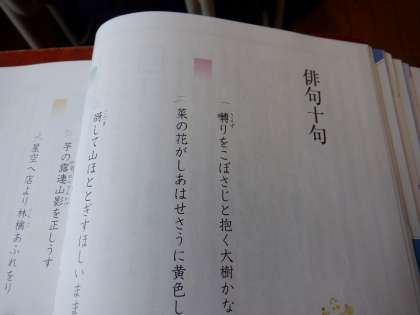 俳句十句
一 囀りをこぼさじと抱く大樹かな
二 菜の花がしあはせさうに黄色し
谺して山ほととぎすほしいまま
芋の露連山影を正しうす
星空へ店より林檎あふれをり